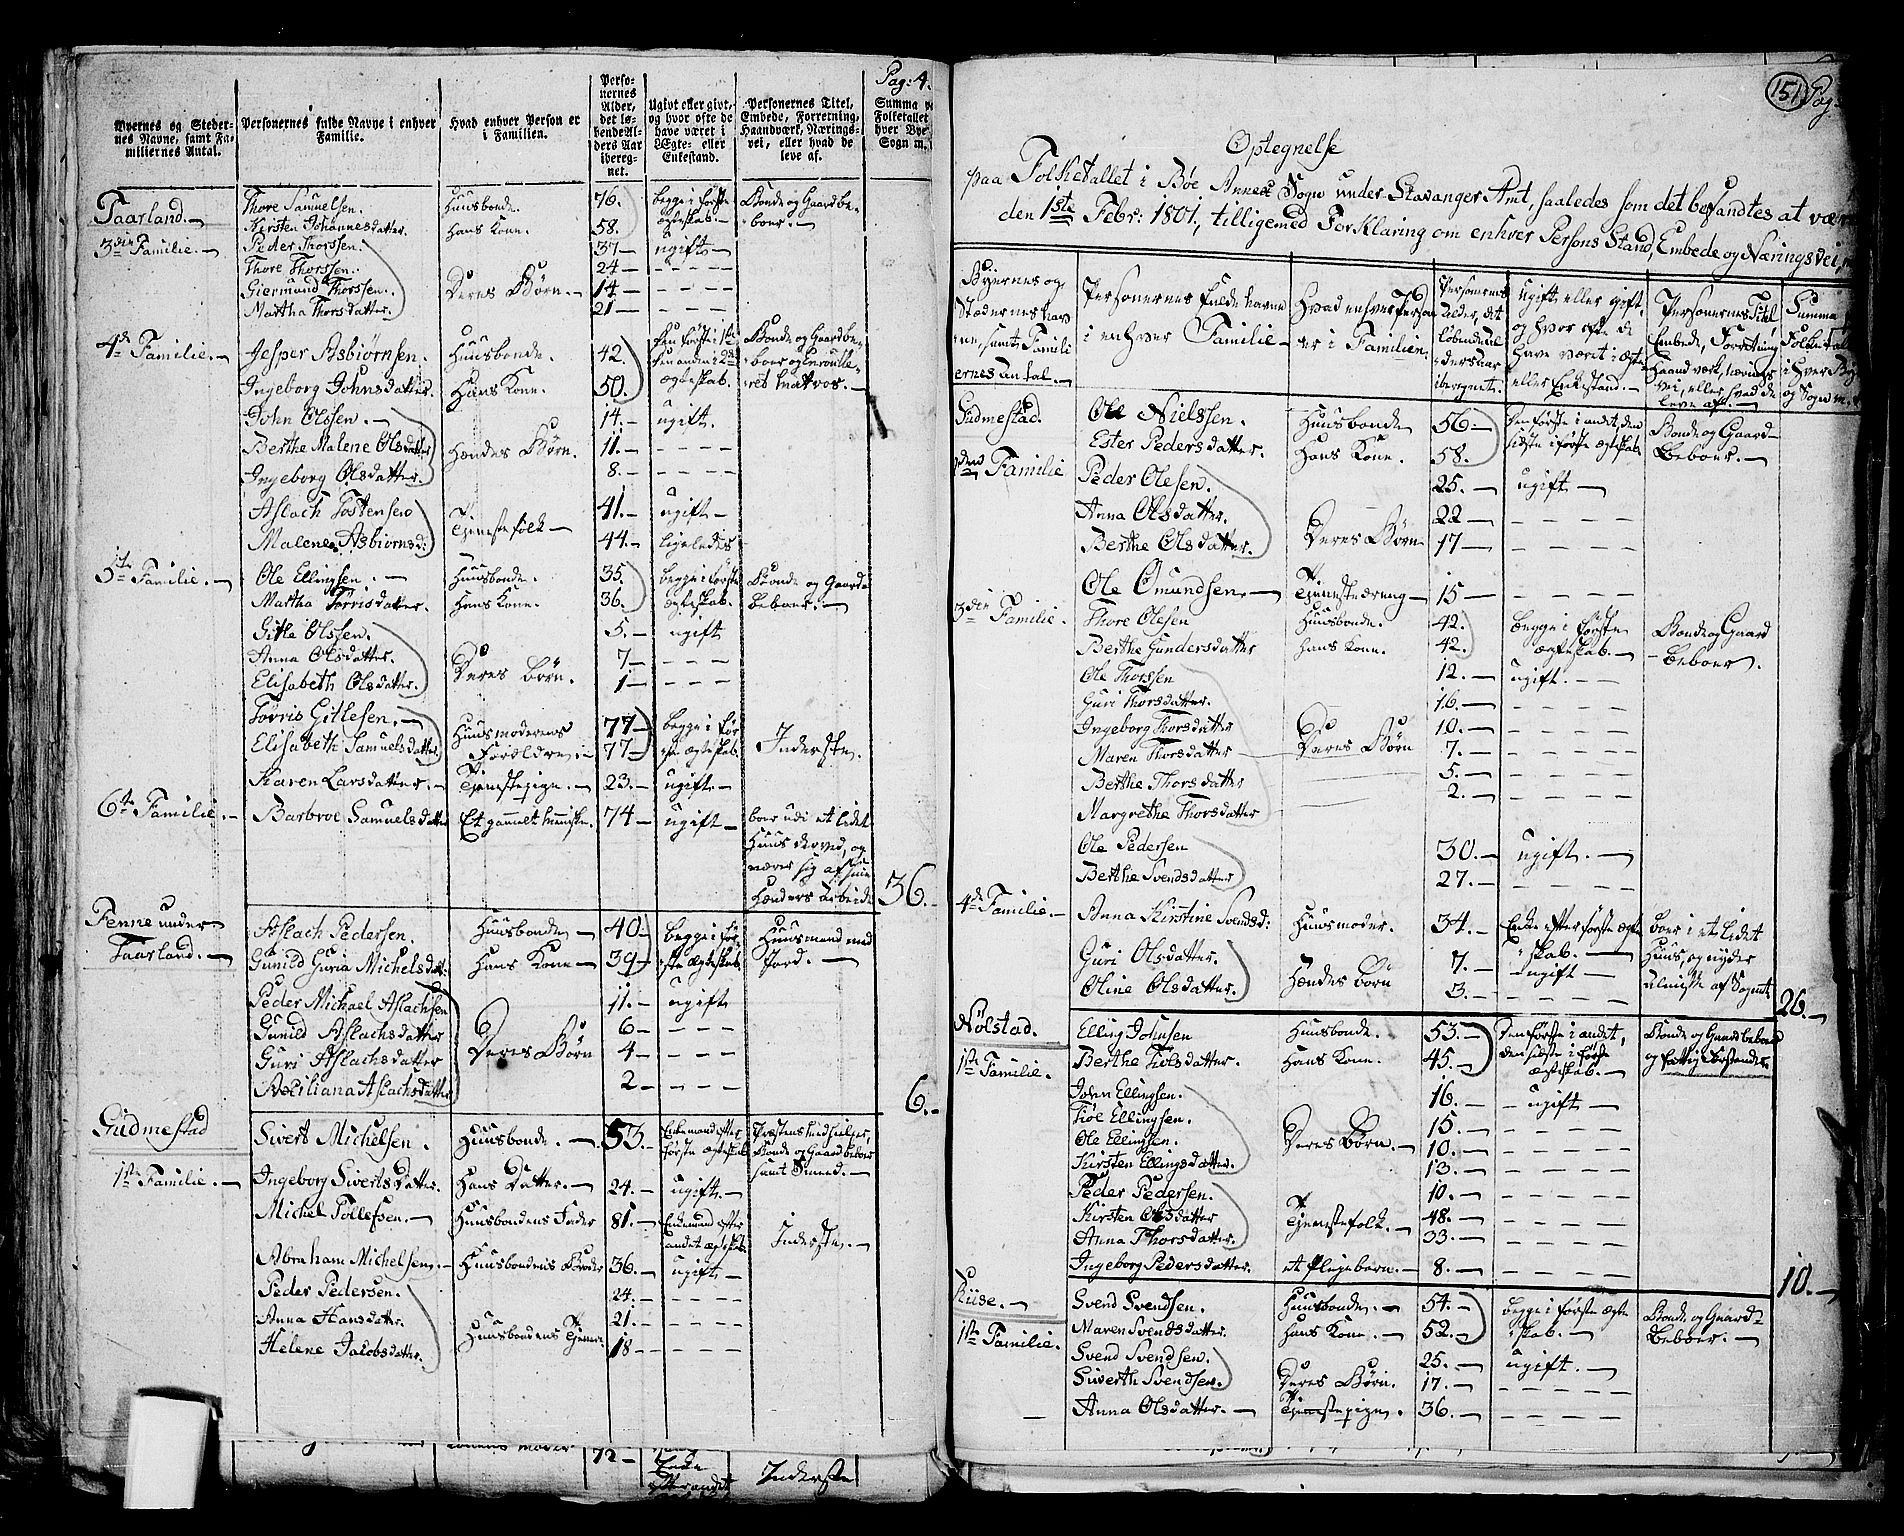 Pag: 4.
Byernes og Steder-
nes Navne, samt Fa-
miliernes Antal.
Personernes fulde Navne i enhver
Familie.
Hvad enhver Person er
i Familien.
Perso-
nernes
Alder,
det lø-
bende Al-
ders Aar
ibereg-
net.
Ugivt eller givt,
og hvor ofte de
have været i
Ægte- eller
Enkestand.
Personernes Titel,
Embede, Forretning,
Haandværk, Nærings-
vei, eller hvad de
leve af.
Summa
Folketallet
hver Bye
Sogn
Taarland.
Thore Samuelsen. Huusbonde. 76. begge i første Bonde og Gaardbe-
Kirsten Johannesdatter. hans Kone. 58. ægteskab. boer.
3die Familie. Peder Thorssen. 37 ugift
Thore Thorssen. 24
Giermund Thorssen. Deres Børn. 14
Martha Thorsdatter. 21
4de Familie. Jesper Asbiørnsen. Huusbonde. 42. den første i 1ste den anden i 2det Bonde og Gaardbe-
boer og Enroulle-
Ingeborg Johnsdatter. Hans Kone. 50. ægteskab. ret Matros.
John Olssen. 14. ugift.
Berthe Malene Olsdatter Hendes Børn. 11.
Ingeborg Olsdatter. 8.
Aslach Tostensen 41. ugift
Tjenestefolk
Malene Asbiørnsd: 44. ligeledes
5te Familie. Ole Ellingsen. Huusbonde. 35. begge i første Bonde og Gaard-
Martha Torrisdatter. Hans Kone. 36. ægteskab. beboer.
Gitle Olssen. 5. ugift
Anna Olsdatter. Deres Børn. 7
Elisabeth Olsdatter. 1
Torris Gitlesen. Huusmoderens 77 begge i før-
Elisabeth Samuelsdatter Forældre 77 ste ægteskab. Inderste.
Karen Larsdatter. Tjenestepige. 23. ugift.
6te Familie. Barbroe Samuelsdatter Et gammelt Menniske. 74 ugift boer udi et lidet
Huus derved, og
nærer sig af sine
Hænders Arbeide 36.
Tenne under
Taarland.
Aslach Pedersen. Huusbonde 40 begge i før- Huusmand med
Gunild Guria Michelsdatt: Hans Kone 39 ste ægteskab. Jord.
Peder Michael Aslachsen 11. ugift
Gunild Aslachsdatter 6
Guri Aslachsdatter Deres Børn 4
Axiliana Aslachsdatter 2
6.
Gudmestad
Sivert Michelsen. Huusbonde. 53. Enkemand efter Præstens Medhielper,
første ægteskab Bonde og Gaardbeboer
samt Smeed.
1ste Familie. Ingeborg Sivertsdatter. Hans Datter. 24. ugift.
Michel Tollefsen. Huusbondens Fader 81. Enkemand efter
andet ægteskab Inderste.
Abraham Michelsen. Huusbondens Broder 36. ugift
Peder Pedersen. 24.
Anna Hansdatter. 21.
Huusbondens Tjener
Helene Jacobsdatter. 18
72
Enke
Inderste
151
Pag
Optegnelse
paa Folketallet i Bøe Annex Sogn under Stavanger Amt, saaledes som det befandtes at være
den 1ste Febr: 1801, tilligemed Forklaring om enhver Persons Stand, Embede og Næringsvei,
Byernes og
Stædernes Nav
ne, samt Famili
ernes Antal.
Personernes fulde Navne
i enhver Familie
Hvad enhver Person
er i Familien.
Personernes
Alder, det
løbende Al
dersaar
iberegnet.
Ugift eller gift,
og hvor ofte de
have været i Ægte
eller Enkestand.
Personernes Titel
Embede, Forretning
Haandværk, Nærings
vei, eller hvad de
leve af.
Summa
Folketal
i hver Bye
og Sogn
Gudmestad. Ole Nielssen. Huusbonde 56. den første i andet, den Bonde og Gaard-
Ester Pedersdatter. Hans Kone. 58. sidste i første ægteskab. Beboer.
2den Familie Peder Olesen. 25. ugift
Anna Olsdatter. 22
Deres Børn
Berthe Olsdatter. 17
Ole Omundsen. Tjenestedreng 15
3die Familie. Thore Olesen Huusbonde. 42. begge i første Bonde og Gaard
Berthe Gundersdatter Hans Kone. 42. ægteskab. beboer.
Ole Thorssen 12. ugift.
Guri Thorsdatter. 16.
Ingeborg Thorsdatter 10.
Maren Thorsdatter Deres Børn 7.
Berthe Thorsdatter 5.
Margrethe Thorsdatter 2.
Ole Pedersen 30. ugift.
Berthe Svendsdatter 27.
4de Familie. Anna Kirstine Svendsd: Huusmoder. 34. Enke efter første ægte boer i et lidet
skab. Huus, og nyder
Guri Olsdatter. 7. ugift Almisse af Sognet
Oline Olsdatter. Hendes Børn 3.
26.
Nølstad. Elling Johnsen Huusbonde. 53. Den første i andet, Bonde og Gaardbeboer
Berthe Tiolsdatter. Hans Kone. 45. den sidste i første og fattigforstander
1ste Familie. ægteskab.
John Ellingsen. 16. ugift
Tiøl Ellingsen. 15.
Ole Ellingsen. Deres Børn. 10.
Kirsten Ellingsdatter. 13.
Peder Pedersen. 10.
Kirsten Olsdatter Tjenestefolk. 48.
Anna Thorsdatter. 33.
Ingeborg Pedersdatter. et Plejebarn. 8.
10.
Riise. Svend Svendsen. Huusbonde. 54. begge i første ægte Bonde og Gaard-
Maren Svendsdatter. Hans Kone. 52. skab. beboer.
1ste Familie. Svend Svendsen. 25. ugift.
Siverth Svendsen. Deres Børn. 17.
Anna Olsdatter. Tjenestepige. 36.